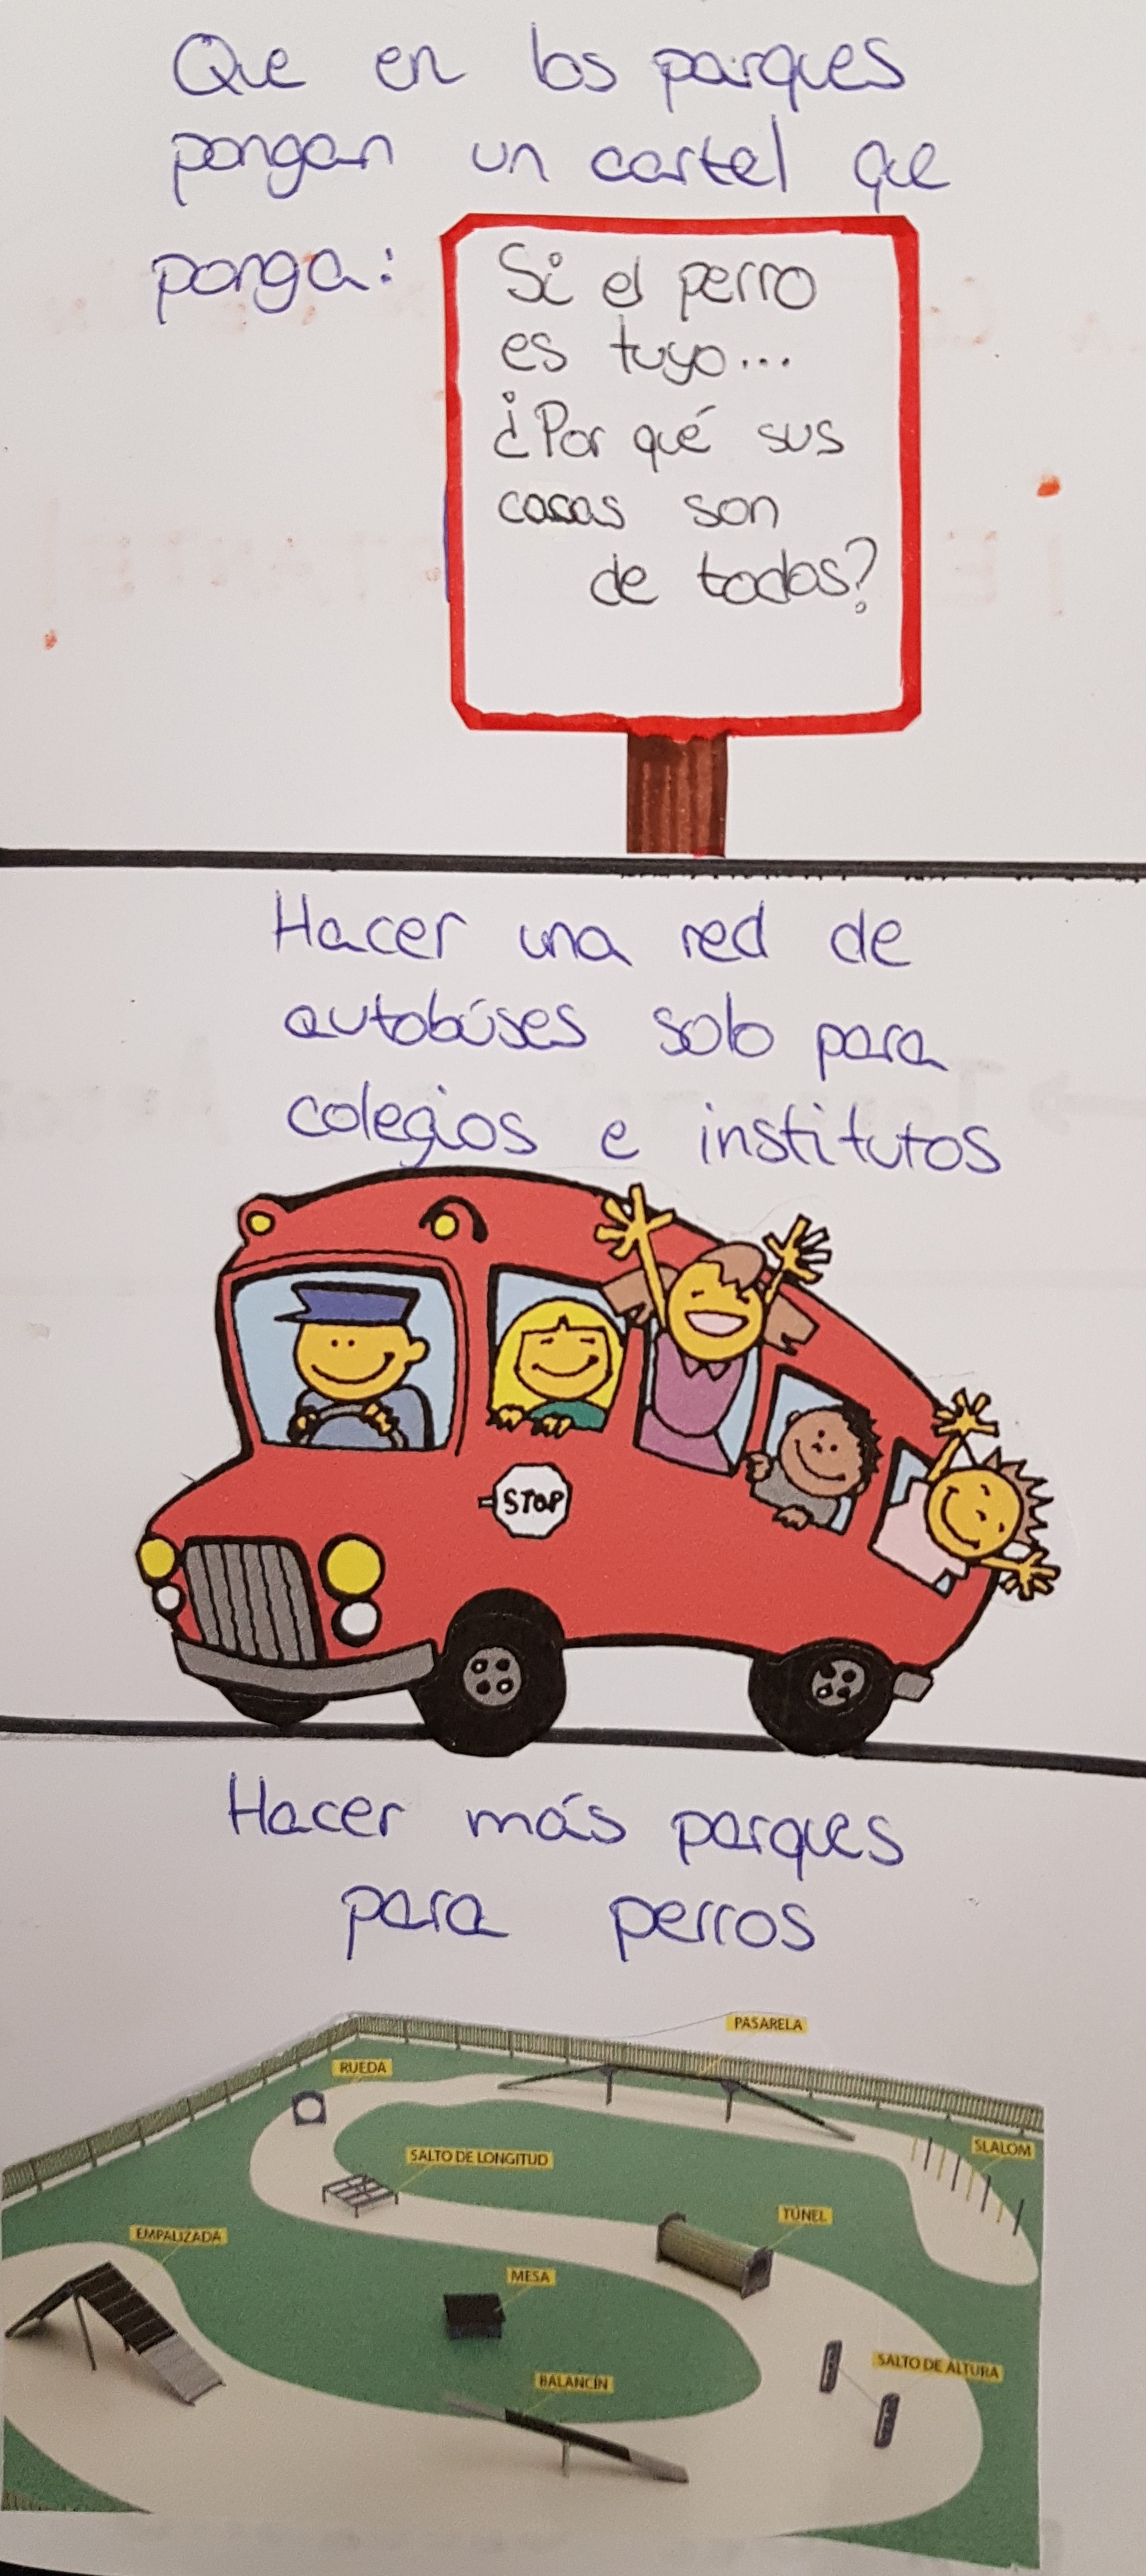 Que en los parques
pongan un cartel que
ponga:
Si el perro
es tuyo...
¿Por qué sus
cacas son
de todos?
Hacer una red de
autobúses solo para
colegios e institutos
STOP
Hacer más parques
para perros
PASARELA
RUEDA
SLALOM
SALTO DE LONGITUD
TÚNEL
EMPALIZADA
MESA
SALTO DE ALTURA
BALANCÍN